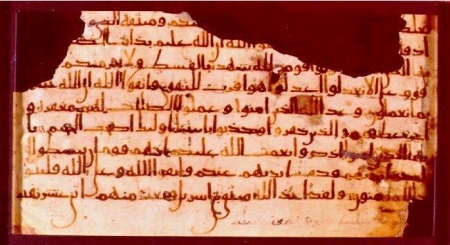 عليكم وميثقه الذي
واتقوا الله ان الله عليم بذات
قومين لله شهدا بالقسط ولا يجرمنكم
قوم على الا تعدلوا اعدلوا هو اقرب للتقوى واتقوا الله ان الله
بما تعملون وعد الله الذين امنوا وعملوا الصلحت لهم مغفرة و
اجر عظيم والذين كفروا وكذبوا بايتنا اوليك اصحب الجحيم يا
يها الذين اذكروا نعمت الله عليكم اذ هم قوم ان يبسطوا ا
ليكم ايديهم فكف ايديهم عنكم واتقوا الله وعلى الله فليتو
كل المومنون ولقد اخذ الله ميثق بني اسريل وبعثنا منهم اثني عشر نقيبا